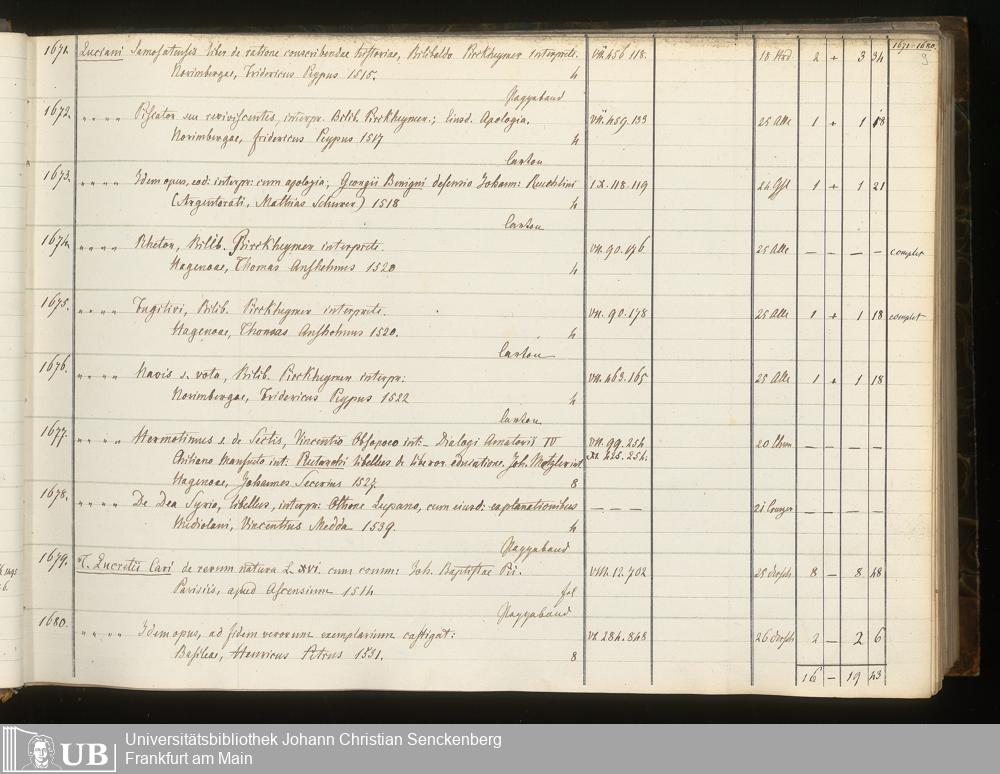 1671-1680.
9
1671. Luciani Samosatensis liber de ratione conscribendae historiae, Bilibaldo Pirckheymer interprete. VII. 456 118. 2 + 3 34
Norimbergae, Fridericus Peypus 1515. 4
Pappband
1672. " " " " Piscator seu reviviscentes, interpr. Bilib. Pirckheymer.; Eiusd. Apologia. VII. 459. 133 25 Alle 1 + 1 18
Norimbergae, Fridericus Peypus 1517 4
Carton
1673. " " " " Idem opus, eod: interpr: cum apologia; Georgii Benigni defensio Johann: Reuchlini IX. 118. 119 1 + 1 21
(Argentorati, Mathias Schurer) 1518 4
Carton
1674. " " " " Rhetor, Bilib. Pirckheymer interprete. VII. 90. 176 25 Alle — — — — complet
Hagenoae, Thomas Anshelmus 1520 4
1675. " " " " Fugitivi, Bilib. Pirckheymer interprete. VII. 90. 178 25 Alle 1 + 1 18 complet
Hagenoae, Thomas Anshelmus 1520. 4
Carton
1676. " " " " Navis s. vota, Bilib. Pirckheymer interpr: VII. 463. 165 25 Alle 1 + 1 18
Norimbergae, Fridericus Peypus 1522 4
Carton
1677. " " " " Hermotimus s. de Sectis, Vincentio Obsopoeo int:- Dialogi Amatorii IV VII. 99. 254 — — — —
Chiliano int: Plutarchi libellus de liberor. educatione. Joh. Metzler int
Hagenoae, Johannes Secerius 1527. 8
1678. " " " " De Dea Syria, libellus, interpr: Othone Lupano, cum eiusd: explanationibus — — —
Mediolani, Vincentius Medda 1539. 4
Pappband
1679. T. Lucretii Cari de rerum natura L. XVI. cum comm: Joh. Baptistae Pii. VIII. 12. 702 8 — 8 48
Parisiis, apud Ascensium 1514 fol
Pappband
1680. " " " " Idem opus, ad fidem verorum exemplarium castigat: VI. 284. 848 2 — 2 6
Basileae, Henricus Petrus 1531. 8
16 — 19 43
UB
Universitätsbibliothek Johann Christian Senckenberg
Frankfurt am Main